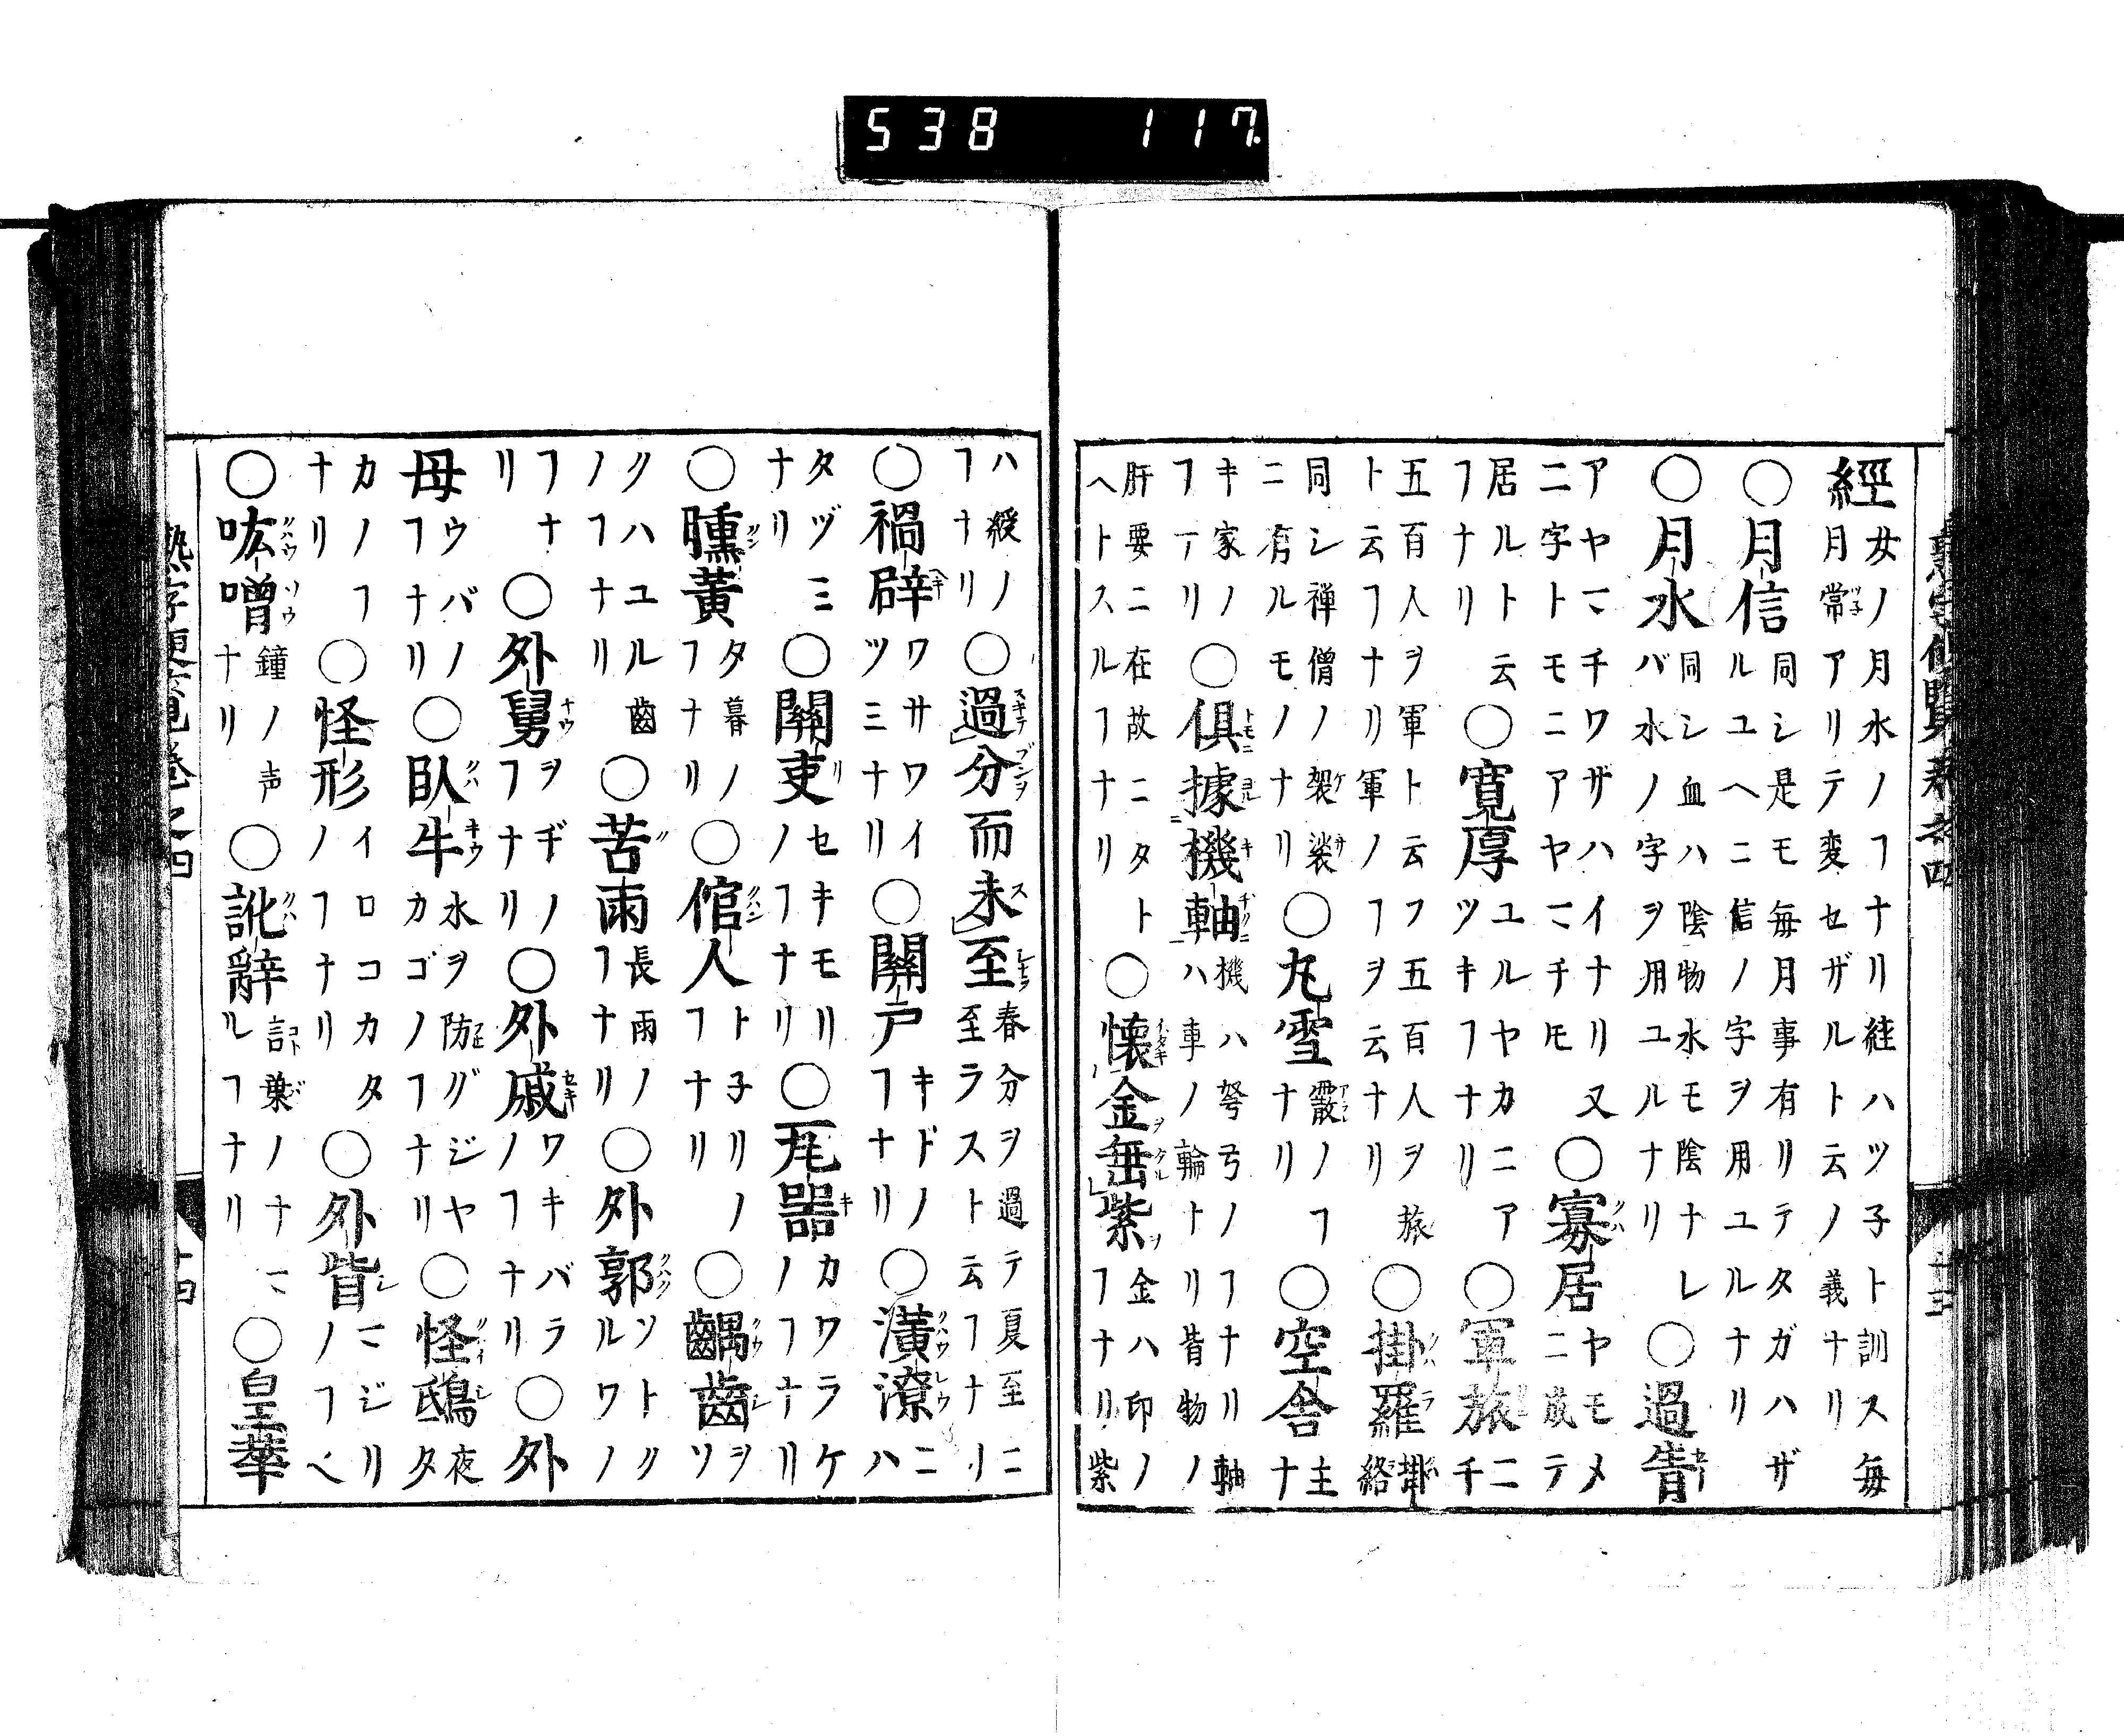 538 117
熟字便覧巻之四 十三
經女ノ月水ノヿナリ経ハツ子ト訓ス毎月常アリテ変セザルト云ノ義ナリ
○月信同シ是モ毎月事有リテタガハザルユヘニ信ノ字ヲ用ユルナリ
○月水同シ血ハ陰物水モ陰ナレバ水ノ字ヲ用ユルナリ○過眚
アヤマチワザハイナリ又二字トモニアヤマチトモ○寡居ヤモメニ成テ
居ルト云ヿナリ○寛厚ユルヤカニアツキヿナリ○軍旅二千
五百人ヲ軍ト云フ五百人ヲ旅ト云フナリ軍ノヿヲ云ナリ○掛羅掛絡
同シ禅僧ノ袈裟ニ有ルモノナリ○丸雪霰ノヿナリ○空舎主ナ
キ家ノヿナリ○倶據機軸機ハ弩弓ノヿナリ軸ハ車ノ輪トリ皆物ノ
肝要ニ在故ニタトヘトスルヿナリ○懐金缶紫金ハ印ノヿナリ紫
ハ綬ノヿナリ○過分而未至春分ヲ過テ夏至ニ至ラスト云フナリ
○禍辟ワサワイツミナリ○關戸キドノヿナリ○潢潦ニハ
タヅミナリ○關吏セキモリノヿナリ○瓦器カワラケノヿナリ
○臐黄夕暮ノヿナリ○倌人ト子リノヿナリ○齲齒ヲソ
クハユル齒ノヿナリ○苦雨長雨ノヿナリ○外郭ソトグルワノ
ヿナリ○外舅ヲヂノヿナリ○外戚ワキバラノヿナリ○外
母ウバノヿナリ○臥牛水ヲ防グジヤカゴノヿナリ○怪鴟夜タ
カノヿナリ○怪形イロコカタノヿナリ○外眥マジリノヿ
○吰噌鐘ノ声ナリ○訛辭言葉ノナマルヿナリ○皇華
熟字便覧巻之四 十四